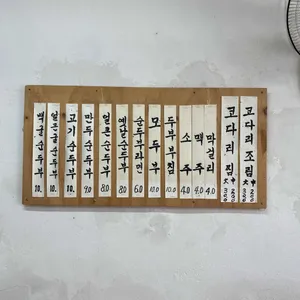 백굴순두부 10.
얼큰굴순두부 10.
고기순두부 10.
만두순두부 9.0
얼큰순두부 8.0
옛날순두부 8.0
순두부라면 6.0
모두부 10.0
두부부침 10.0
소주 4.0
맥주 4.0
막걸리 4.0
코다리찜 大 中
코다리조림 大 中